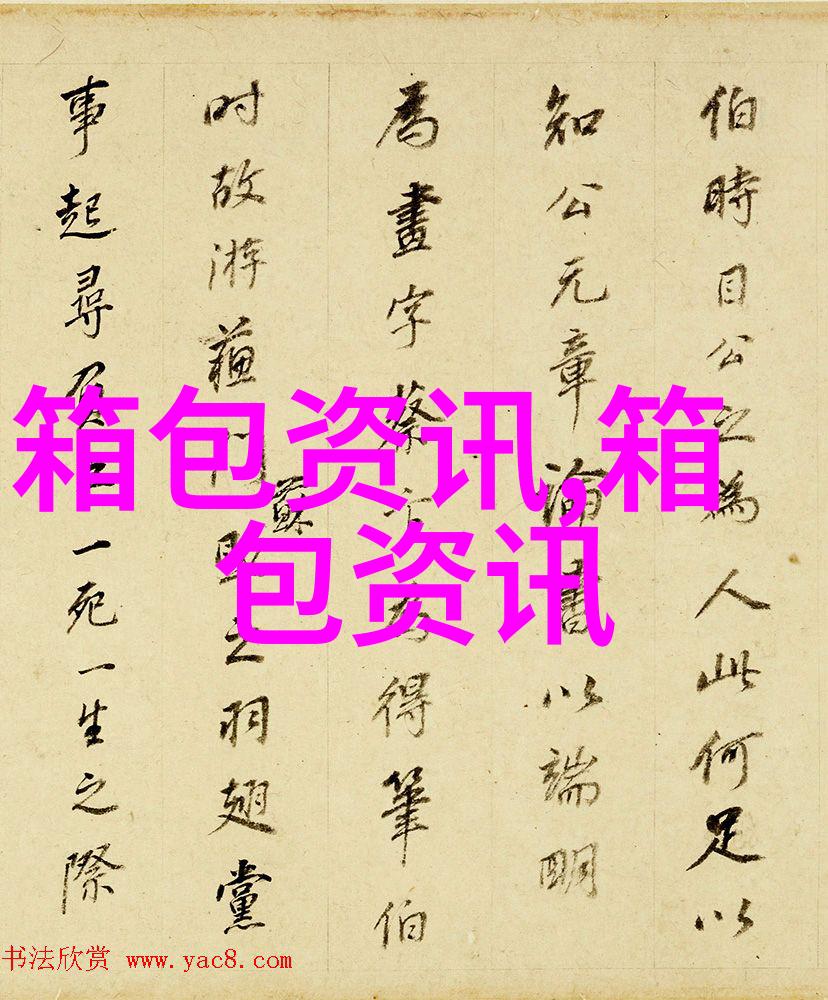 伯時目公之為人此何足以
知公元章論書以端明
為畫字蔡為得筆伯
時故游蘇門蘇之羽翅黨
事起尋一死一生之際
箱包资讯,箱
包资讯
书法欣赏 www.yac8.com